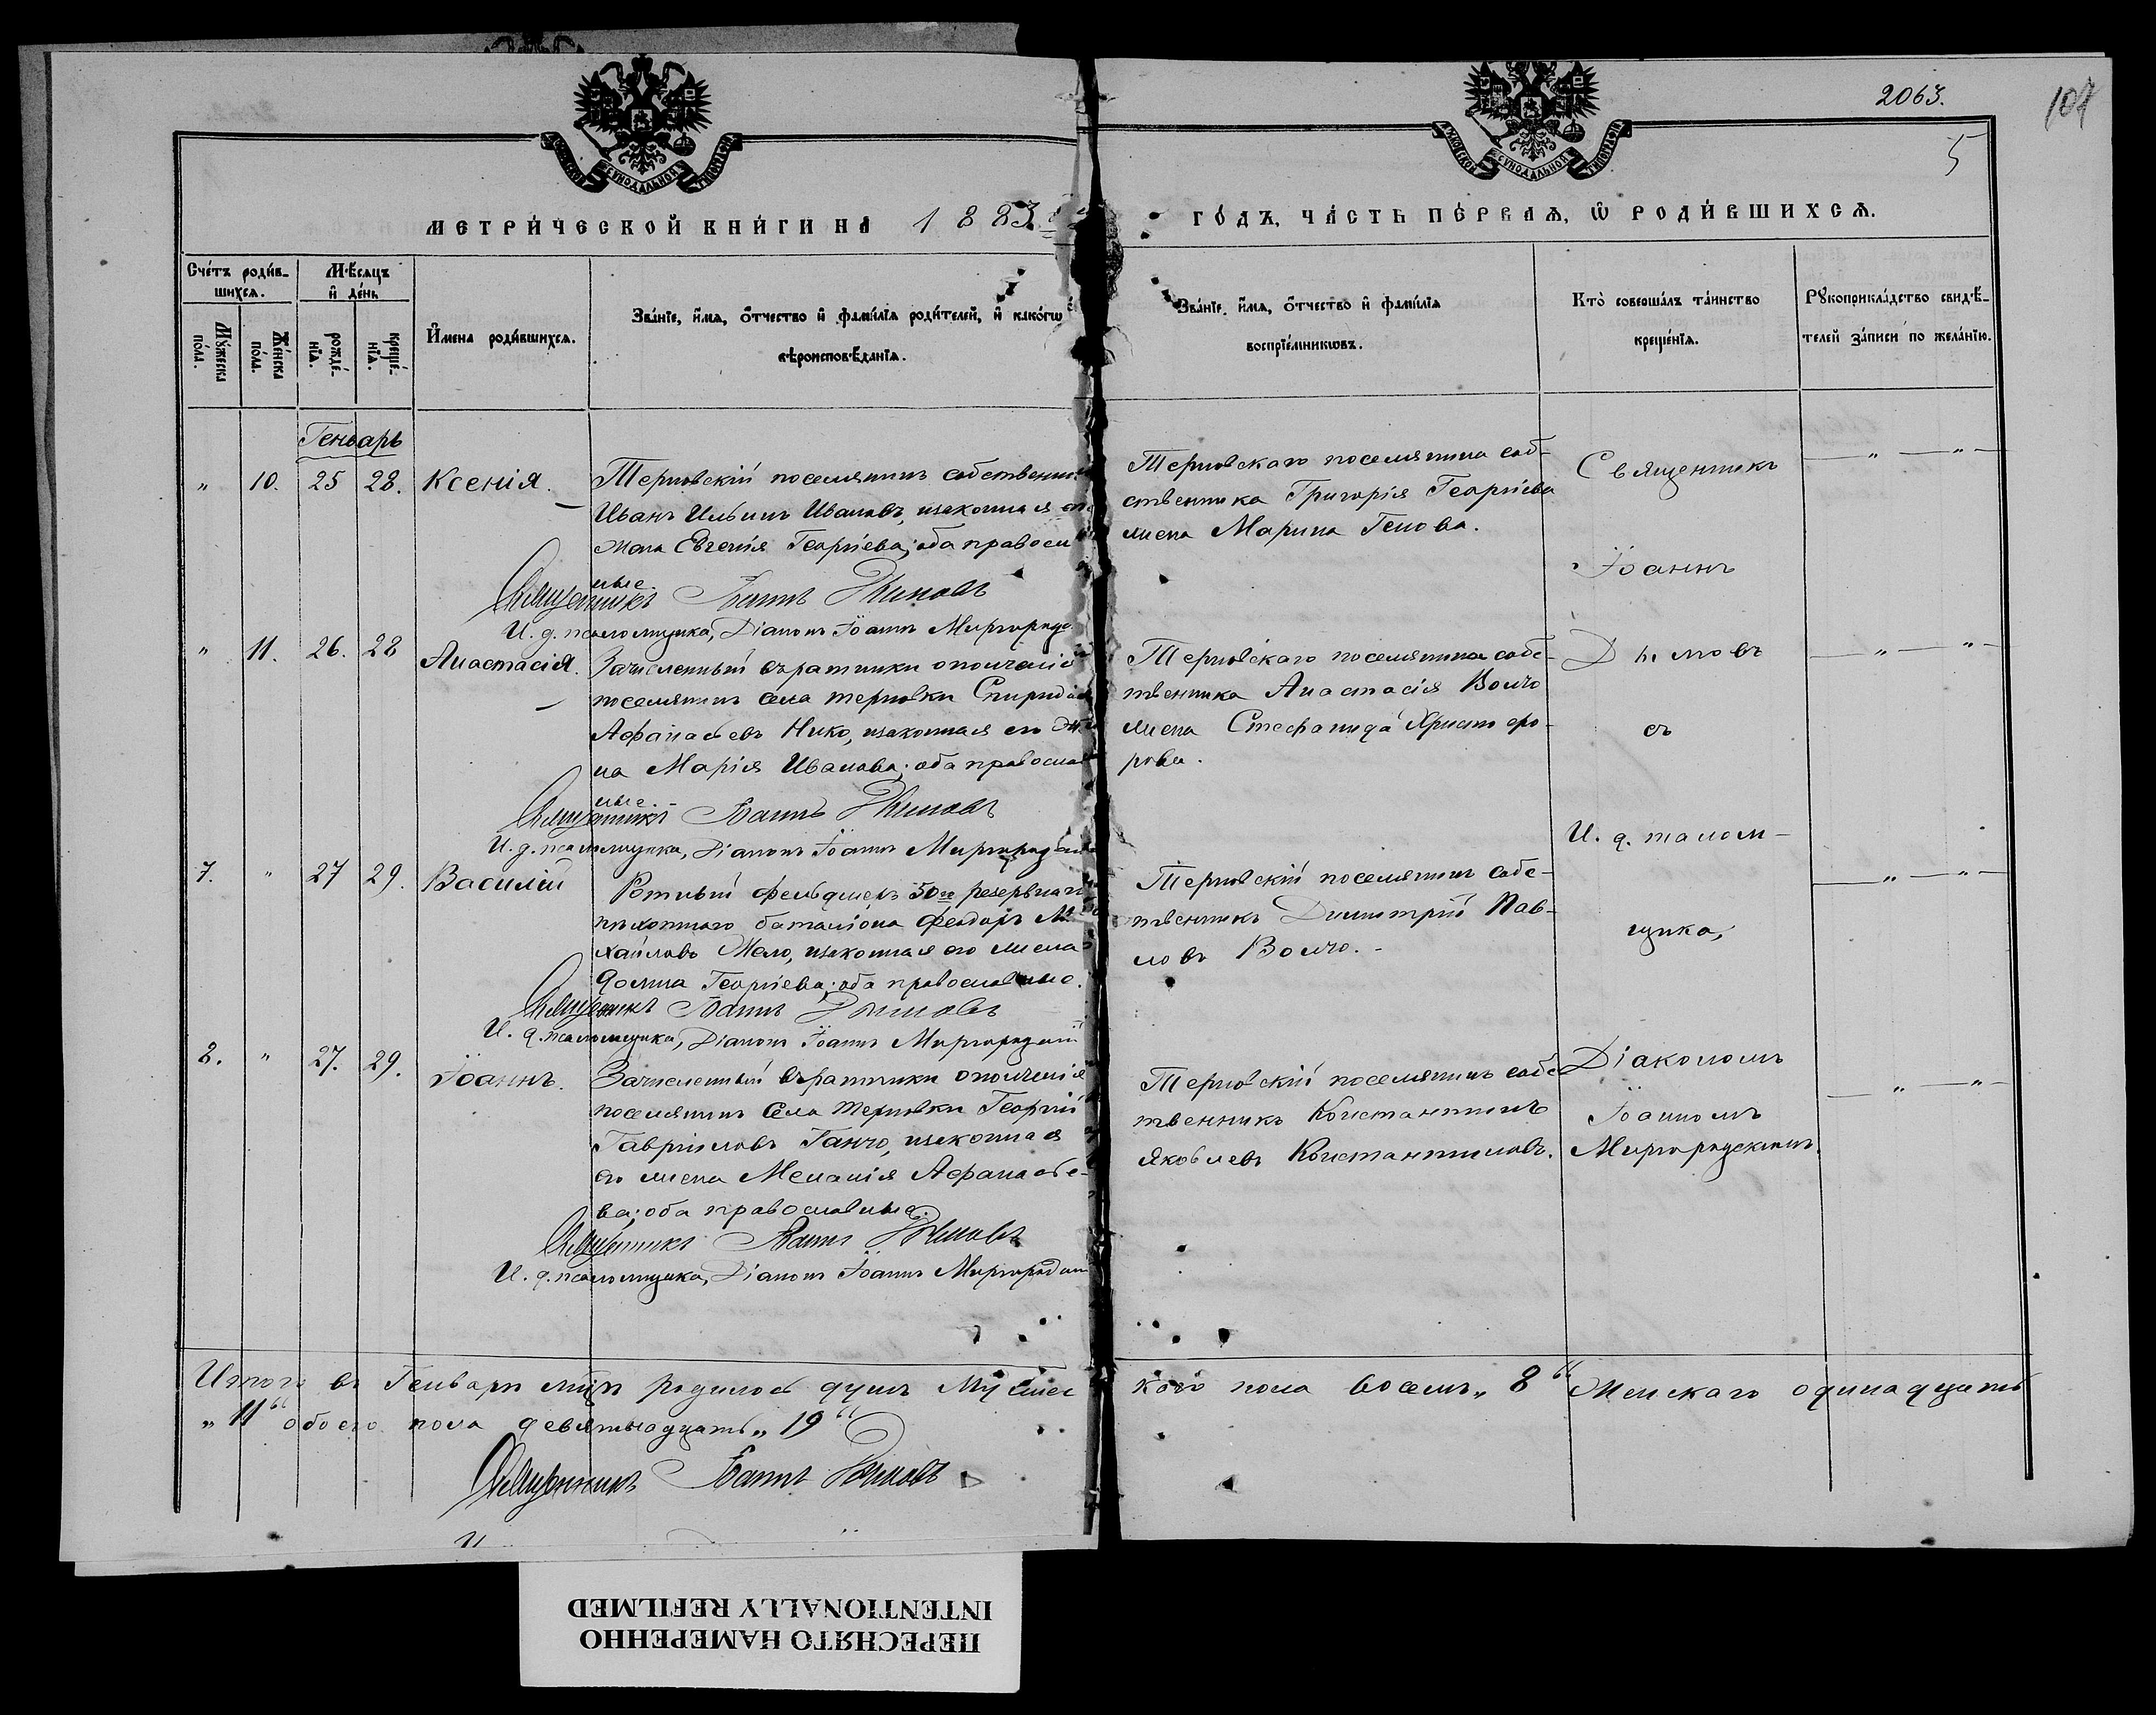 2063.
107
5
МЕТРИ́ЧЕСКОЙ КНИ́ГИ НА 1883
ГО́ДЪ, ЧА́СТЬ ПЕ́РВАѦ, Ѡ РОДИ́ВШИХСѦ.
Сче́тъ роди́в-
шихсѧ.
Мѣ́сѧцъ
и́ де́нь
Му́жеска
по́ла.
Же́нска
по́ла.
рожде́-
нїѧ.
креще́-
нїѧ.
И́мена роди́вшихсѧ.
Зва́нїе, и́мѧ, о́тчество и́ фами́лїѧ роди́телей, и́ како́гѡ
вѣроисповѣ́данїѧ.
Зва́нїе, и́мѧ, о́тчество и́ фами́лїѧ
воспрїе́мникѡвъ.
Кто̀ соверша́лъ та́инство
креще́нїѧ.
Рꙋкоприкла́дство свидѣ́-
телей за́писи по жела́нїю.
Генварь
" 10. 25 28. Ксенія.
Терновскій поселянинъ собственни
Иванъ Ильинъ Ивановъ, изаконная ег
жена Евгенія Георгіева; оба правосла
ные.
Священникъ Іоаннъ Дымовъ
И. д. псаломщика, Діаконъ Іоаннъ Миргородс
Терновскаго поселянина соб-
ственника Григорія Георгіева
жена Марина Генова.
Священникъ
Іоаннъ
Дымовъ
съ
И. д. псалом-
щика,
Діакономъ
Іоанномъ
Миргородскимъ.
" 11. 26. 28 Анастасія.
Зачисленный въ ратники ополченія
поселянинъ села терновки Спиридон
Афанасьевъ Нико, изаконная его Же
на Марія Иванова; оба правосла
ные.-
Священникъ Іоаннъ Дымовъ
И. д. псаломщика, Діаконъ Іоаннъ Миргородскі
Терновскаго поселянина собс-
твенника Анастасія Волчо
жена Стефанида Христофо-
рова.
7. " 27 29. Василій
Ротный фельдшеръ 50го резервнаго
пѣхотнаго баталіона Феодоръ Ми
хайловъ Мело, изаконная его жена
Домна Георгіева; оба православные.
Священникъ Іоаннъ Дымовъ
И. д. псаломщика, Діаконъ Іоаннъ Миргородскій
Терновскій поселянинъ собс-
твенникъ Димитрій Пав-
ловъ Волчо.-
8. " 27. 29. Іоаннъ.
Зачисленный въ ратники ополченія
поселянинъ села терновки Георгій
Гавріиловъ Ганчо, изаконная
его жена Меланія Афанасье-
ва; оба православные.
Священникъ Іоаннъ Дымовъ
И. д. псаломщика, Діаконъ Іоаннъ Миргородскі
Терновскій поселянинъ собс-
твенникъ Константинъ
Яковлевъ Константиновъ.
Итого въ Генварѣ мцѣ родилось душъ Мужес каго пола восемь „8“ Женскаго одинадцать
„11“ обоего пола девятнадцать „19“
Священникъ Іоаннъ Дымовъ
И
ПЕРЕСНЯТО НАМЕРЕННО
INTENTIONALLY REFILMED